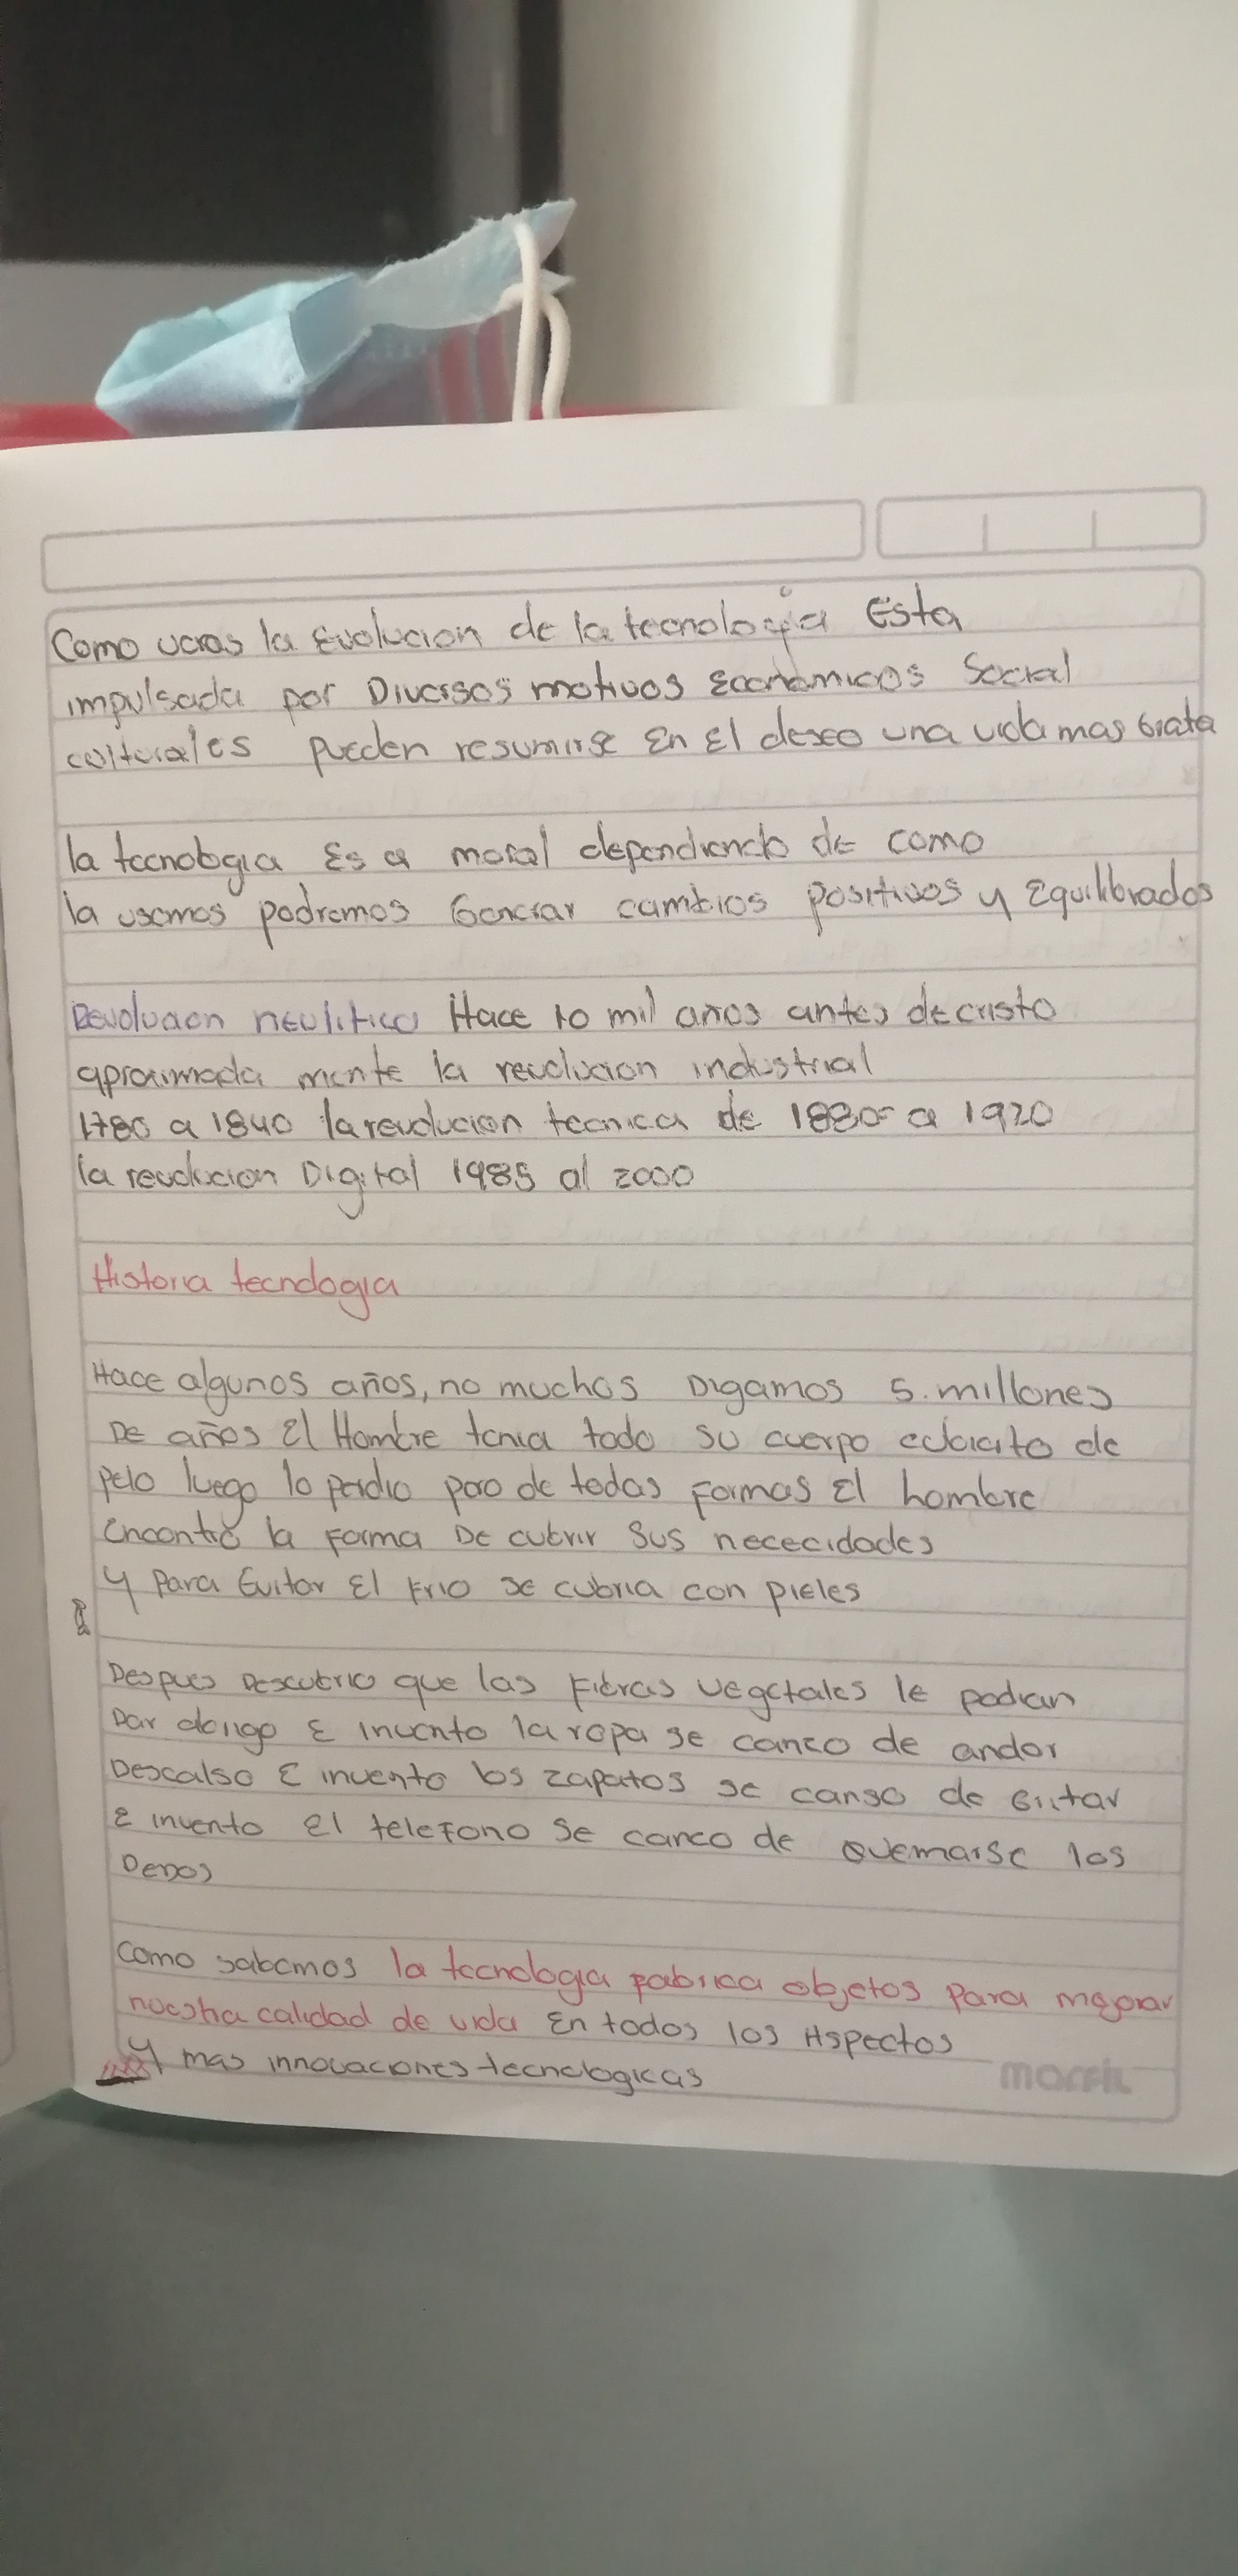 Como veras la Evolucion de la tecnologia Esta
impulsada por Diversos motivos Económicos Social
culturales pueden resumirse En El deseo una vida mas Grata
la tecnologia Es a moral dependiendo de como
la usemos podremos Generar cambios positivos y Equilibrados
Revolucion neulitica Hace 10 mil años antes de cristo
aproximada mente la revolucion industrial
1780 a 1840 la revolucion tecnica de 1880 a 1920
la revolucion Digital 1985 al 2000
Historia tecnologia
Hace algunos años, no muchos Digamos 5. millones
De años El Hombre tenia todo su cuerpo cubierto de
pelo luego lo perdio pero de todas Formas El hombre
Encontró la Forma De cubrir Sus nececidades
y Para Evitar El Frio se cubria con pieles
Despues Descubrio que las Fibras vegetales le podian
Dar abrigo E invento la ropa se canzo de andar
Descalso E invento los zapatos se canso de Gritar
E invento El telefono Se canco de Quemarse los
Dedos
Como sabemos la tecnologia Fabrica objetos Para mejorar
nuestra calidad de vida En todos los Aspectos
y mas innovaciones tecnologicas
marfil